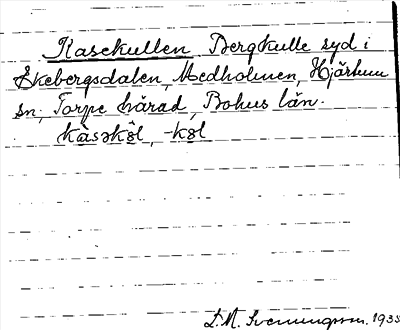 Kasekullen Bergkulle syd i
Ekebergsdalen, Medholmen, Hjärtum
sn, Torpe härad, Bohus län.
kàsəkə̂l, -kəl
L.M. Svenungsson. 1935